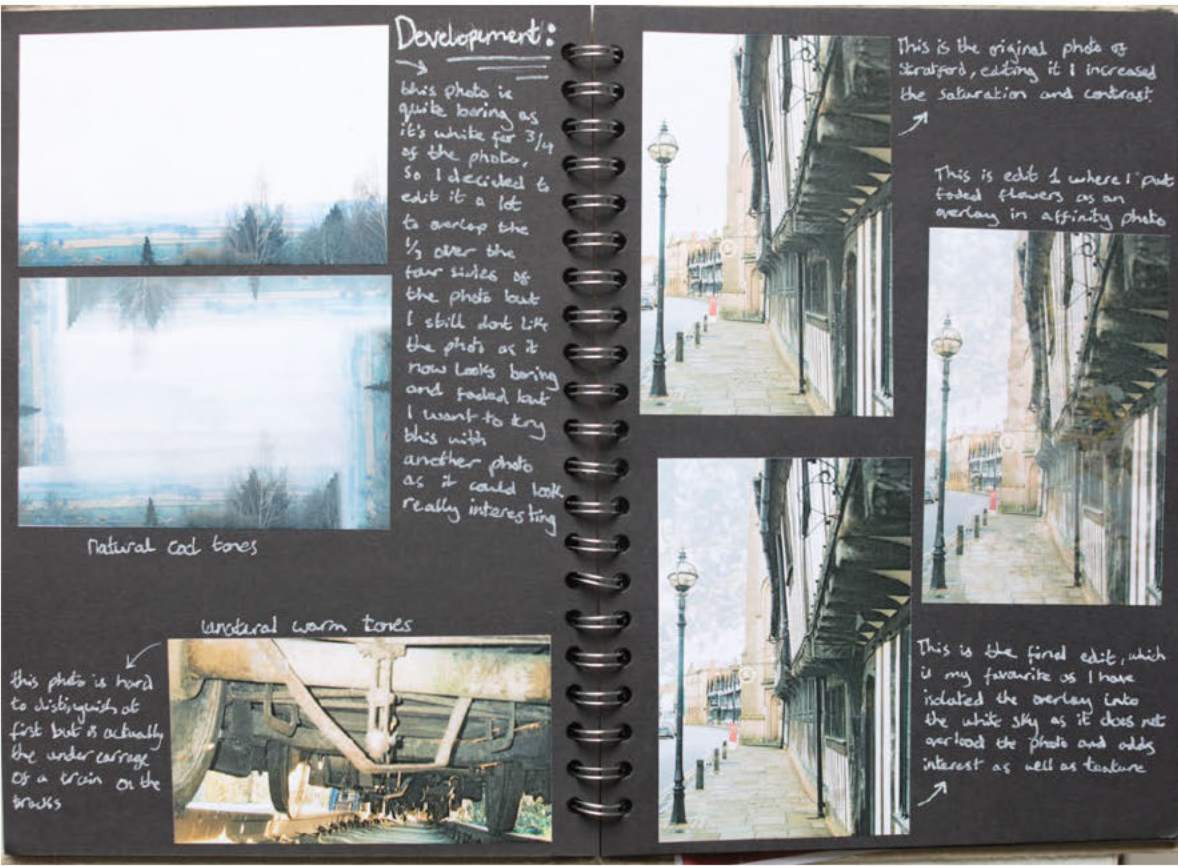 Development:
this photo is
quite boring as
it's white for 3/4
of the photo,
so I decided to
edit it a lot
to overlap the
1/3 over the
four sides of
the photo but
I still dont like
the photo as it
now looks boring
and faded but
I want to try
this with
another photo
as it could look
really interesting
natural cool tones
unatural warm tones
this photo is hard
to distinguish at
first but is actually
the under carrage
of a train on the
tracks
This is the original photo of
stratford, editing it I increased
the saturation and contrast.
This is edit 1 where I put
faded flowers as an
overlay in affinity photo
This is the final edit, which
is my favourite as I have
isolated the overlay into
the white sky as it does not
overload the photo and adds
interest as well as texture